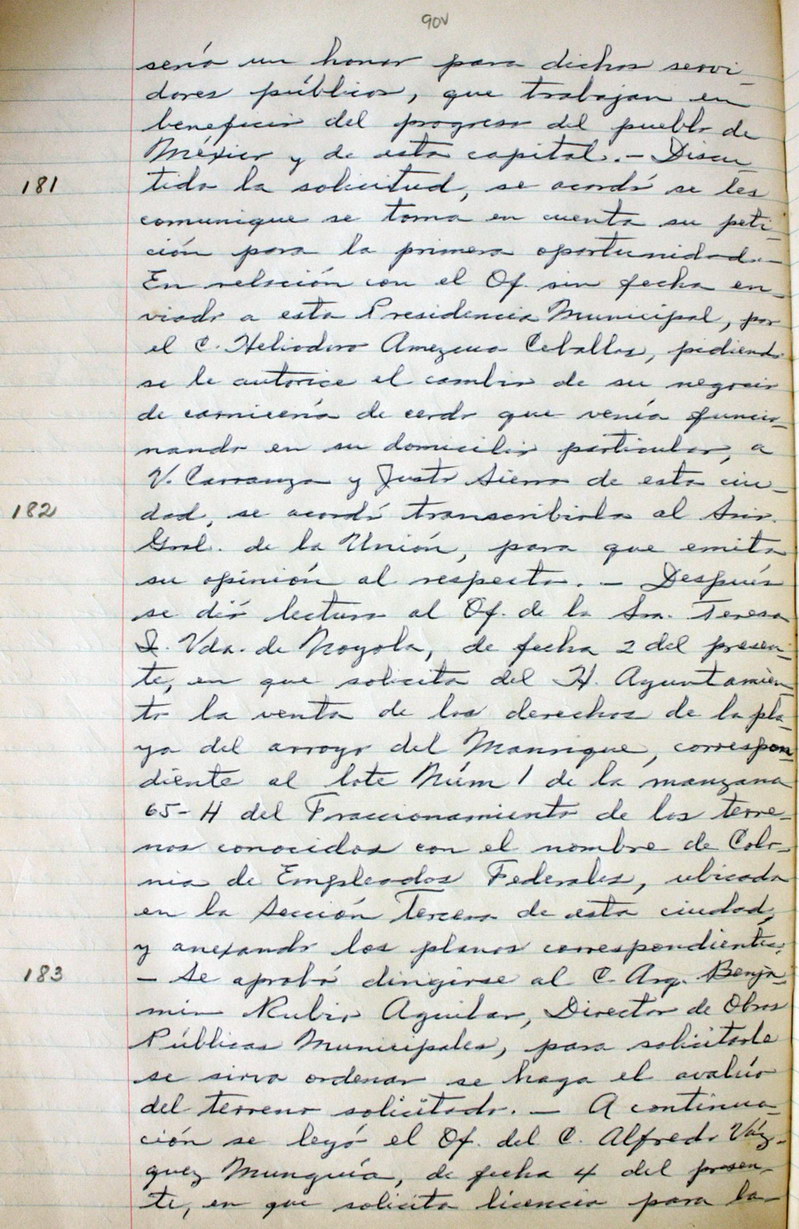 90V
sería un honor para dichos servi-
dores públicos, que trabajan en
beneficio del progreso del pueblo de
México y de esta capital. - Discu-
181 tida la solicitud, se acordó se les
comunique se toma en cuenta su peti-
ción para la primera oportunidad. -
En relación con el Of. sin fecha en-
viado a esta Presidencia Municipal, por
el C. Heliodoro Amezcua Ceballos, pidiendo
se le autorice el cambio de su negocio
de carnicería de cerdo que venía funcio-
nando en su domicilio particular, a
V. Carranza y Justo Sierra de esta ciu-
182 dad, se acordó transcribirlo al
Gral. de la Unión, para que emita
su opinión al respecto. - Después
se dió lectura al Of. de la Sra. Teresa
I. Vda. de Noyola, de fecha 2 del presen-
te, en que solicita del H. Ayuntamien-
to la venta de los derechos de la pla-
ya del arroyo del Manrique, correspon-
diente al lote Núm 1 de la manzana
65-H del Fraccionamiento de los terre-
nos conocidos con el nombre de Colo-
nia de Empleados Federales, ubicada
en la Sección Tercera de esta ciudad,
y anexando los planos correspondientes.
183 - Se aprobó dirigirse al C. Arq. Benja-
min Rubio Aguilar, Director de Obras
Públicas Municipales, para solicitarle
se sirva ordenar se haga el avalúo
del terreno solicitado. - A continua-
ción se leyó el Of. del C. Alfredo Váz-
quez Munguía, de fecha 4 del presen-
te, en que solicita licencia para la-